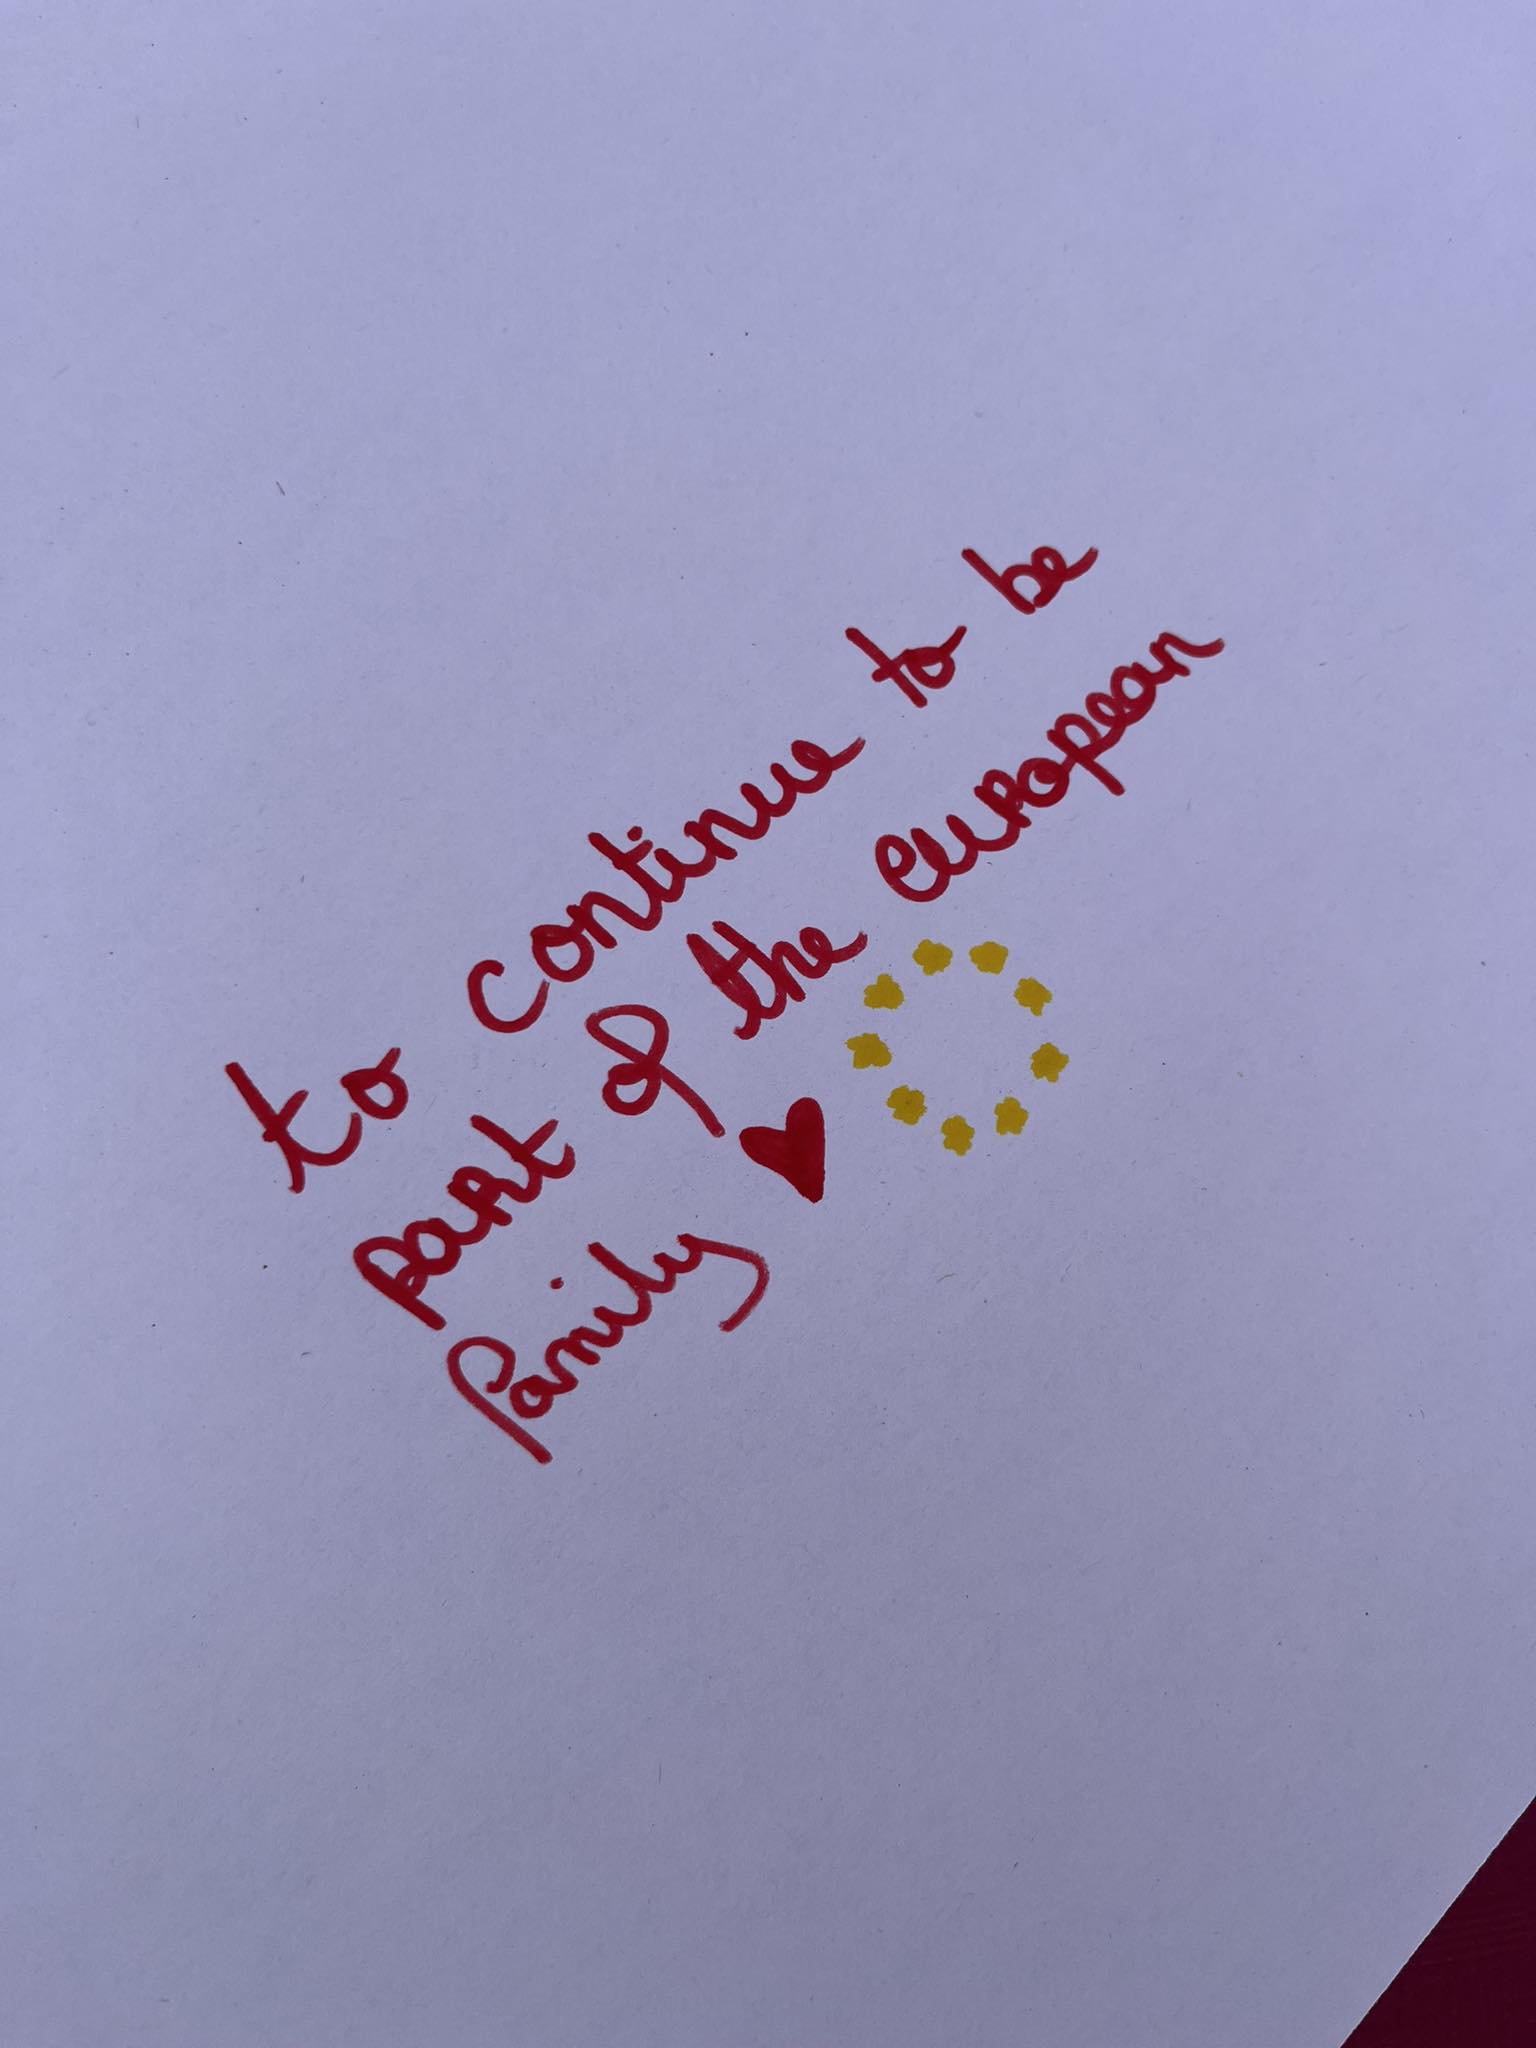 to continue to be
part of the european
family